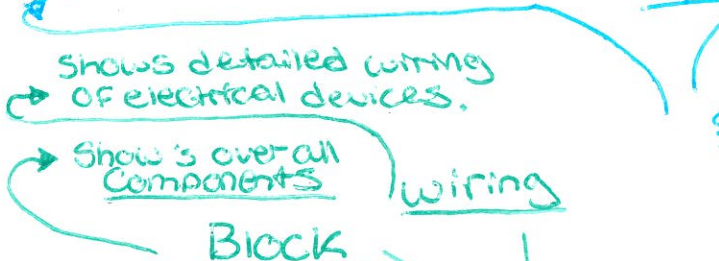 Shows detailed wirring
of electrical devices.
Show's over-all
Components
wiring
Block